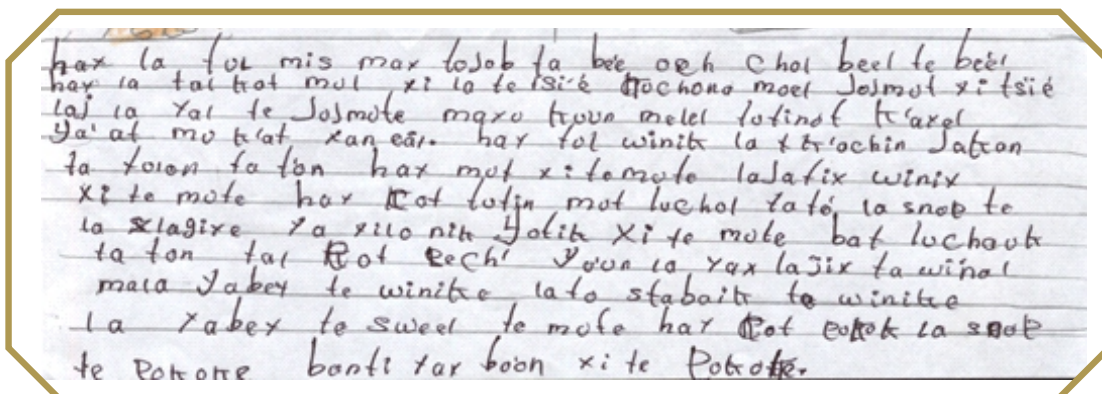 hax la tol mis max losob ta bee och chol beel te beel
hay la tal kot mul xi la te tsi'é kochono moel Josmot xi tsié
laj la xal te Josmote maxo koon melel lotinot k'axel
ya' at mo k'at xan cár. hay tol winik la x kriochin Jatcon
ta toion ta ton hax mot xi te mote la Jatix winix
xi te mote hay kot lotin mot luchol ta té, la snop te
la slagixe ya xilo nik Yolik xi te mote bat luchauk
ta ton tal kot Pech' Yoon la yax laJix ta winal
mala yabey te winike lato stabaik te winike
la yabey te sweel te mote hay kot Pokok la snop
te Pokoke banti xax boon xi te Pokoke.